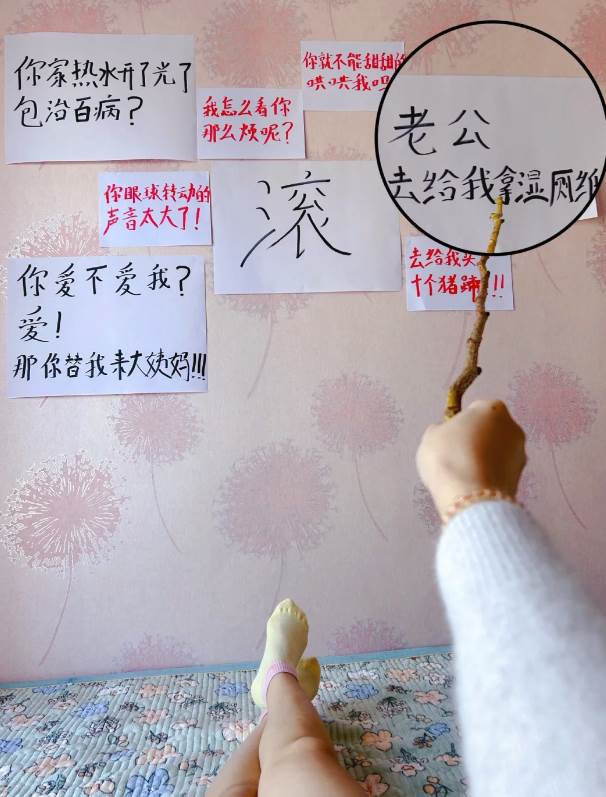 你家热水开了光了
包治百病?
你就不能甜甜的
哄哄我吗
我怎么看你
那么烦呢?
老公
去给我拿湿厕纸
你眼球转动的
声音太大了!
滚
去给我买
十个猪蹄!!!
你爱不爱我?
爱!
那你替我来大姨妈!!!